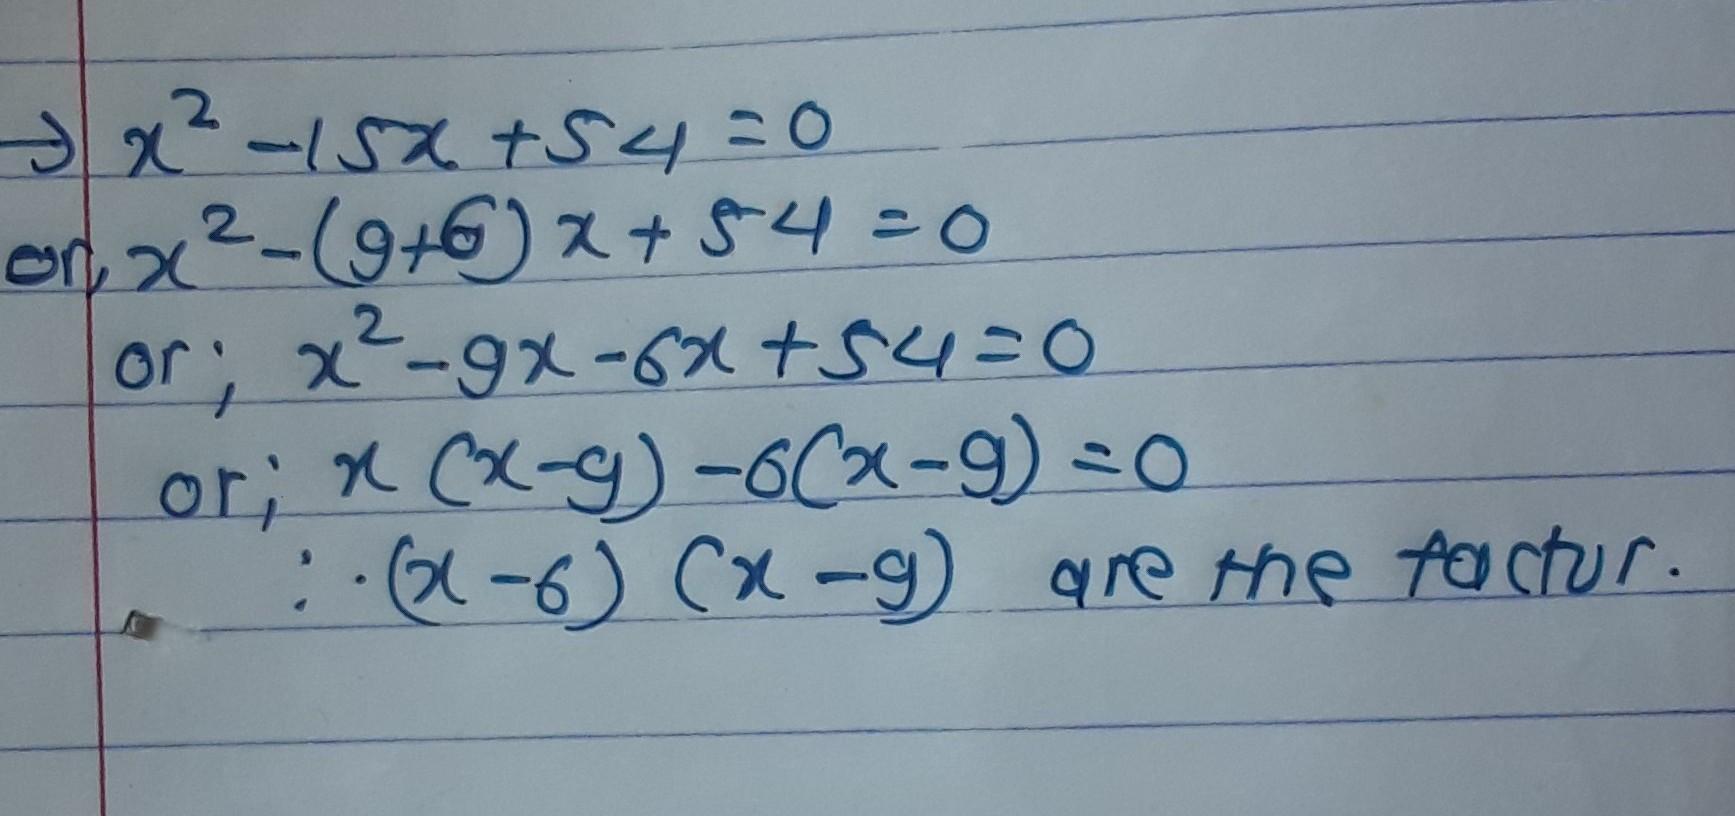 → x² -15x +54 = 0
or, x² -(9+6) x + 54 = 0
or; x² -9x -6x +54 = 0
or; x (x-9) -6(x-9) = 0
∴ (x-6) (x-9) are the factur.